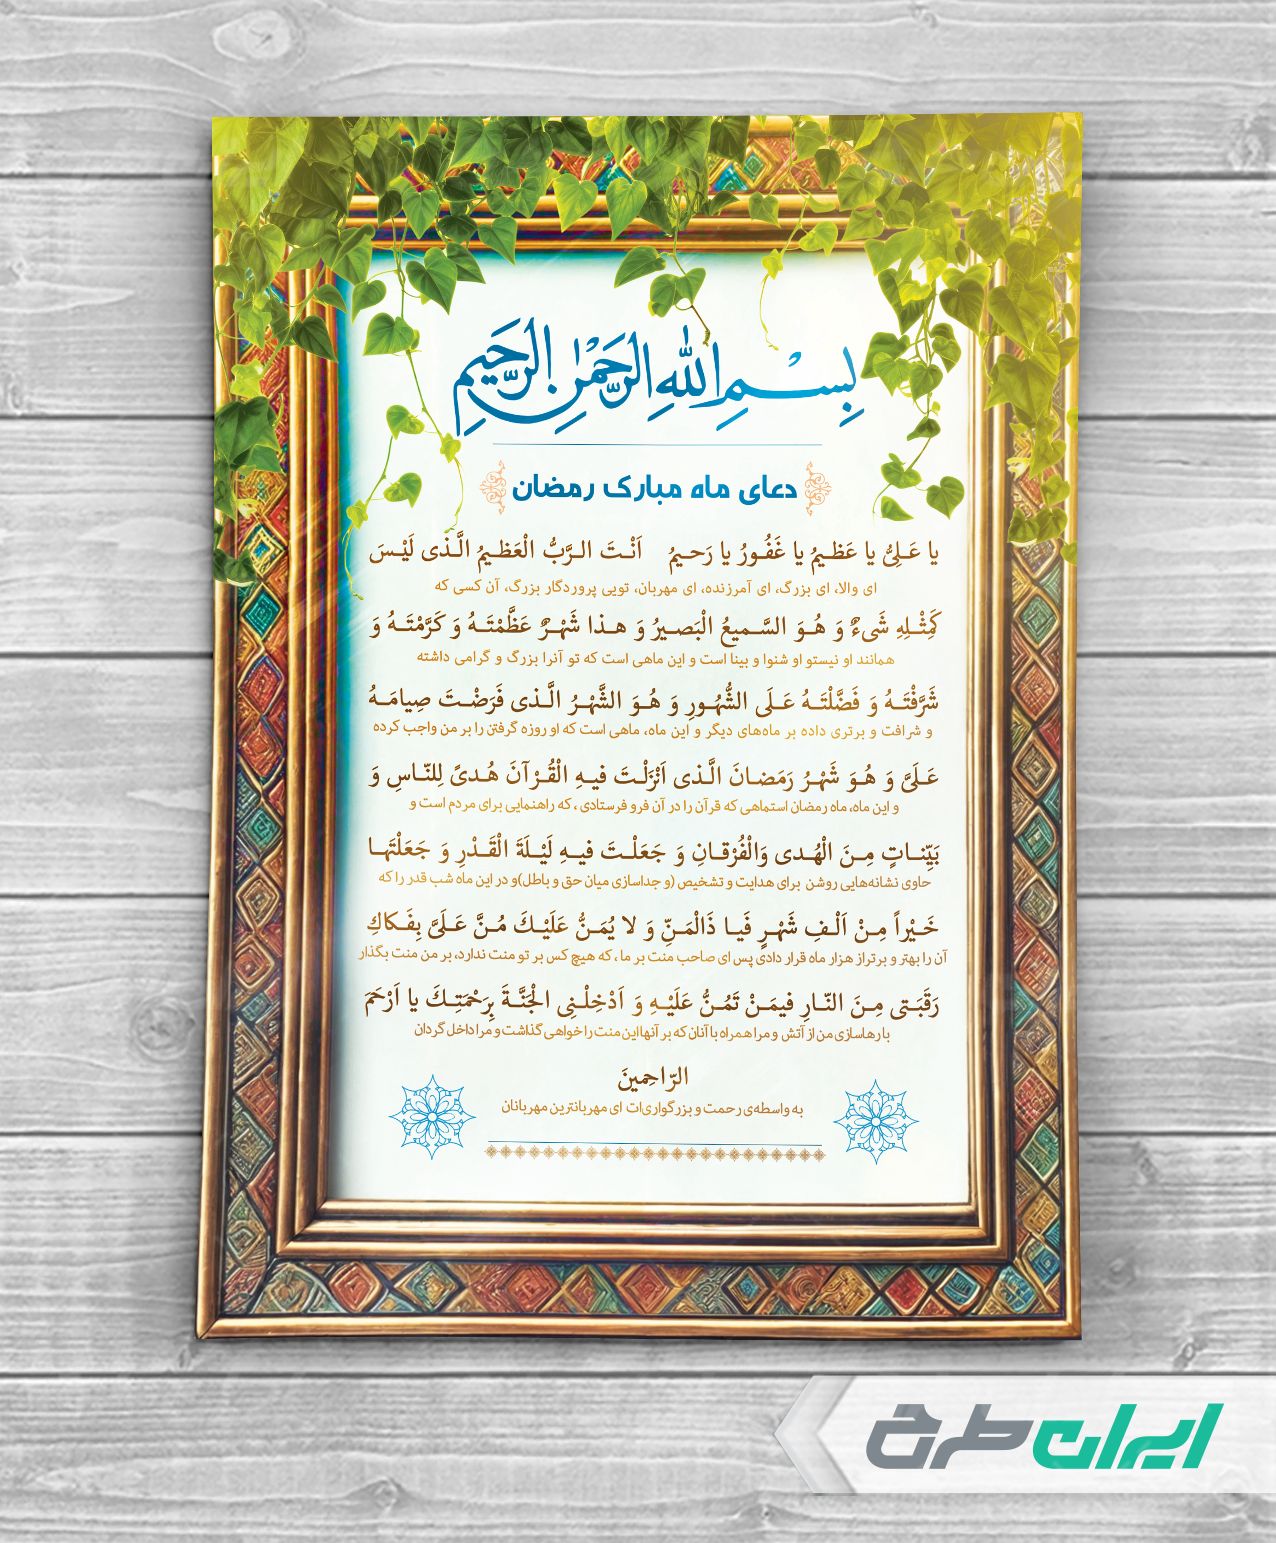 بِسْمِ اللهِ الرَّحْمٰنِ الرَّحیمِ
دعای ماه مبارک رمضان
یا عَلِیُّ یا عَظیمُ یا غَفُورُ یا رَحیمُ اَنْتَ الرَّبُّ الْعَظیمُ الَّذی لَیْسَ
ای والا، ای بزرگ، ای آمرزنده، ای مهربان، تویی پروردگار بزرگ، آن کسی که
کَمِثْلِهِ شَیءٌ وَ هُوَ السَّمیعُ الْبَصیرُ وَ هذا شَهْرٌ عَظَّمْتَهُ وَ کَرَّمْتَهُ وَ
همانند او نیستو او شنوا و بینا است و این ماهی است که تو آنرا بزرگ و گرامی داشته
شَرَّفْتَهُ وَ فَضَّلْتَهُ عَلَی الشُّهُورِ وَ هُوَ الشَّهْرُ الَّذی فَرَضْتَ صِیامَهُ
و شرافت و برتری داده بر ماه‌های دیگر و این ماه، ماهی است که او روزه گرفتن را بر من واجب کرده
عَلَیَّ وَ هُوَ شَهْرُ رَمَضانَ الَّذی اَنْزَلْتَ فیهِ الْقُرْآنَ هُدیً لِلنّاسِ وَ
و این ماه، ماه رمضان استماهی که قرآن را در آن فرو فرستادی ، که راهنمایی برای مردم است و
بَیِّناتٍ مِنَ الْهُدی وَالْفُرْقانِ وَ جَعَلْتَ فیهِ لَیْلَةَ الْقَدْرِ وَ جَعَلْتَها
حاوی نشانه‌هایی روشن برای هدایت و تشخیص (و جداسازی میان حق و باطل)و در این ماه شب قدر را که
خَیْراً مِنْ اَلْفِ شَهْرٍ فَیا ذَالْمَنِّ وَ لا یُمَنُّ عَلَیْكَ مُنَّ عَلَیَّ بِفَکاكِ
آن را بهتر و برتراز هزار ماه قرار دادی پس ای صاحب منت بر ما ، که هیچ کس بر تو منت ندارد، بر من منت بگذار
رَقَبَتی مِنَ النّارِ فیمَنْ تَمُنُّ عَلَیْهِ وَ اَدْخِلْنِی الْجَنَّةَ بِرَحْمَتِكَ یا اَرْحَمَ
با رهاسازی من از آتش و مرا همراه با آنان که بر آنهااین منت را خواهی گذاشت و مرا داخل گردان
الرّاحِمینَ
به واسطه‌ی رحمت و بزرگواری‌ات ای مهربانترین مهربانان
ایران طرح